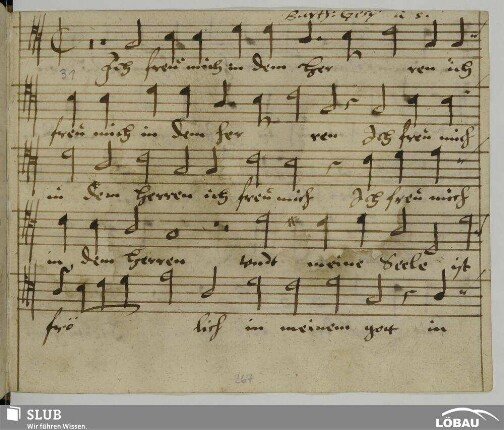 Barth: Gesf: a 5.
31
Ich freu mich in dem Her ren ich
freu mich in dem her ren Ich freu mich
in dem Herren ich freu mich Ich freu mich
in dem Herren vndt meine Seele ist
frö lich in meinem gott in
267
SLUB
Wir führen Wissen.
LÖBAU